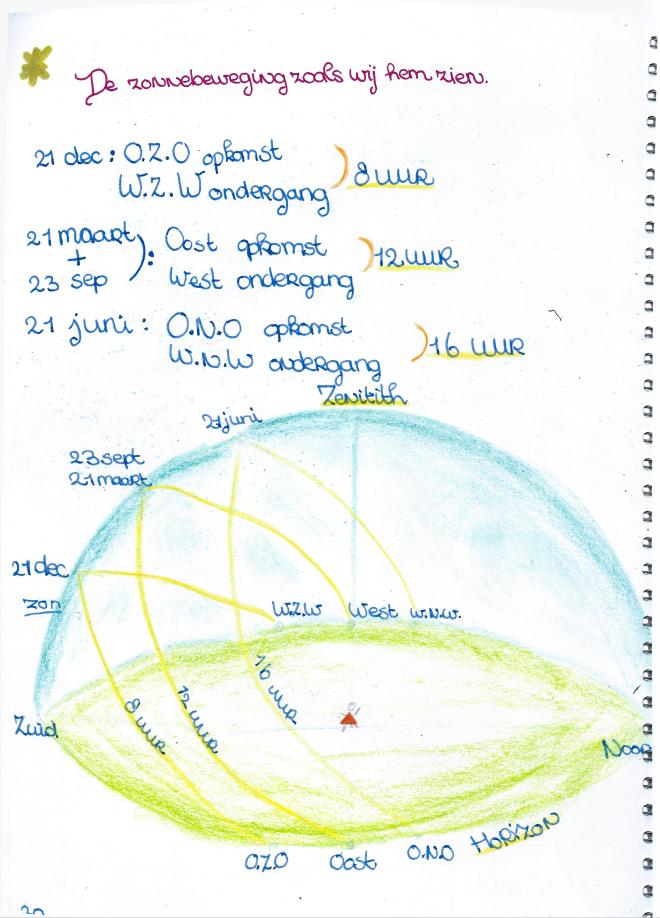 De zonnebeweging zoals wij hem zien.
21 dec : O.Z.O opkomst
W.Z.W ondergang
8 UUR
21 maart
+
23 sep
: Oost opkomst
West ondergang
12 UUR
21 juni : O.N.O opkomst
W.N.W ondergang
16 UUR
Zenitith
21 juni
23 sept
21 maart
21 dec
zon
W.Z.W West W.N.W.
16 UUR
12 UUR
8 UUR
Zuid
Noor
O.Z.O Oost O.N.O Horizon